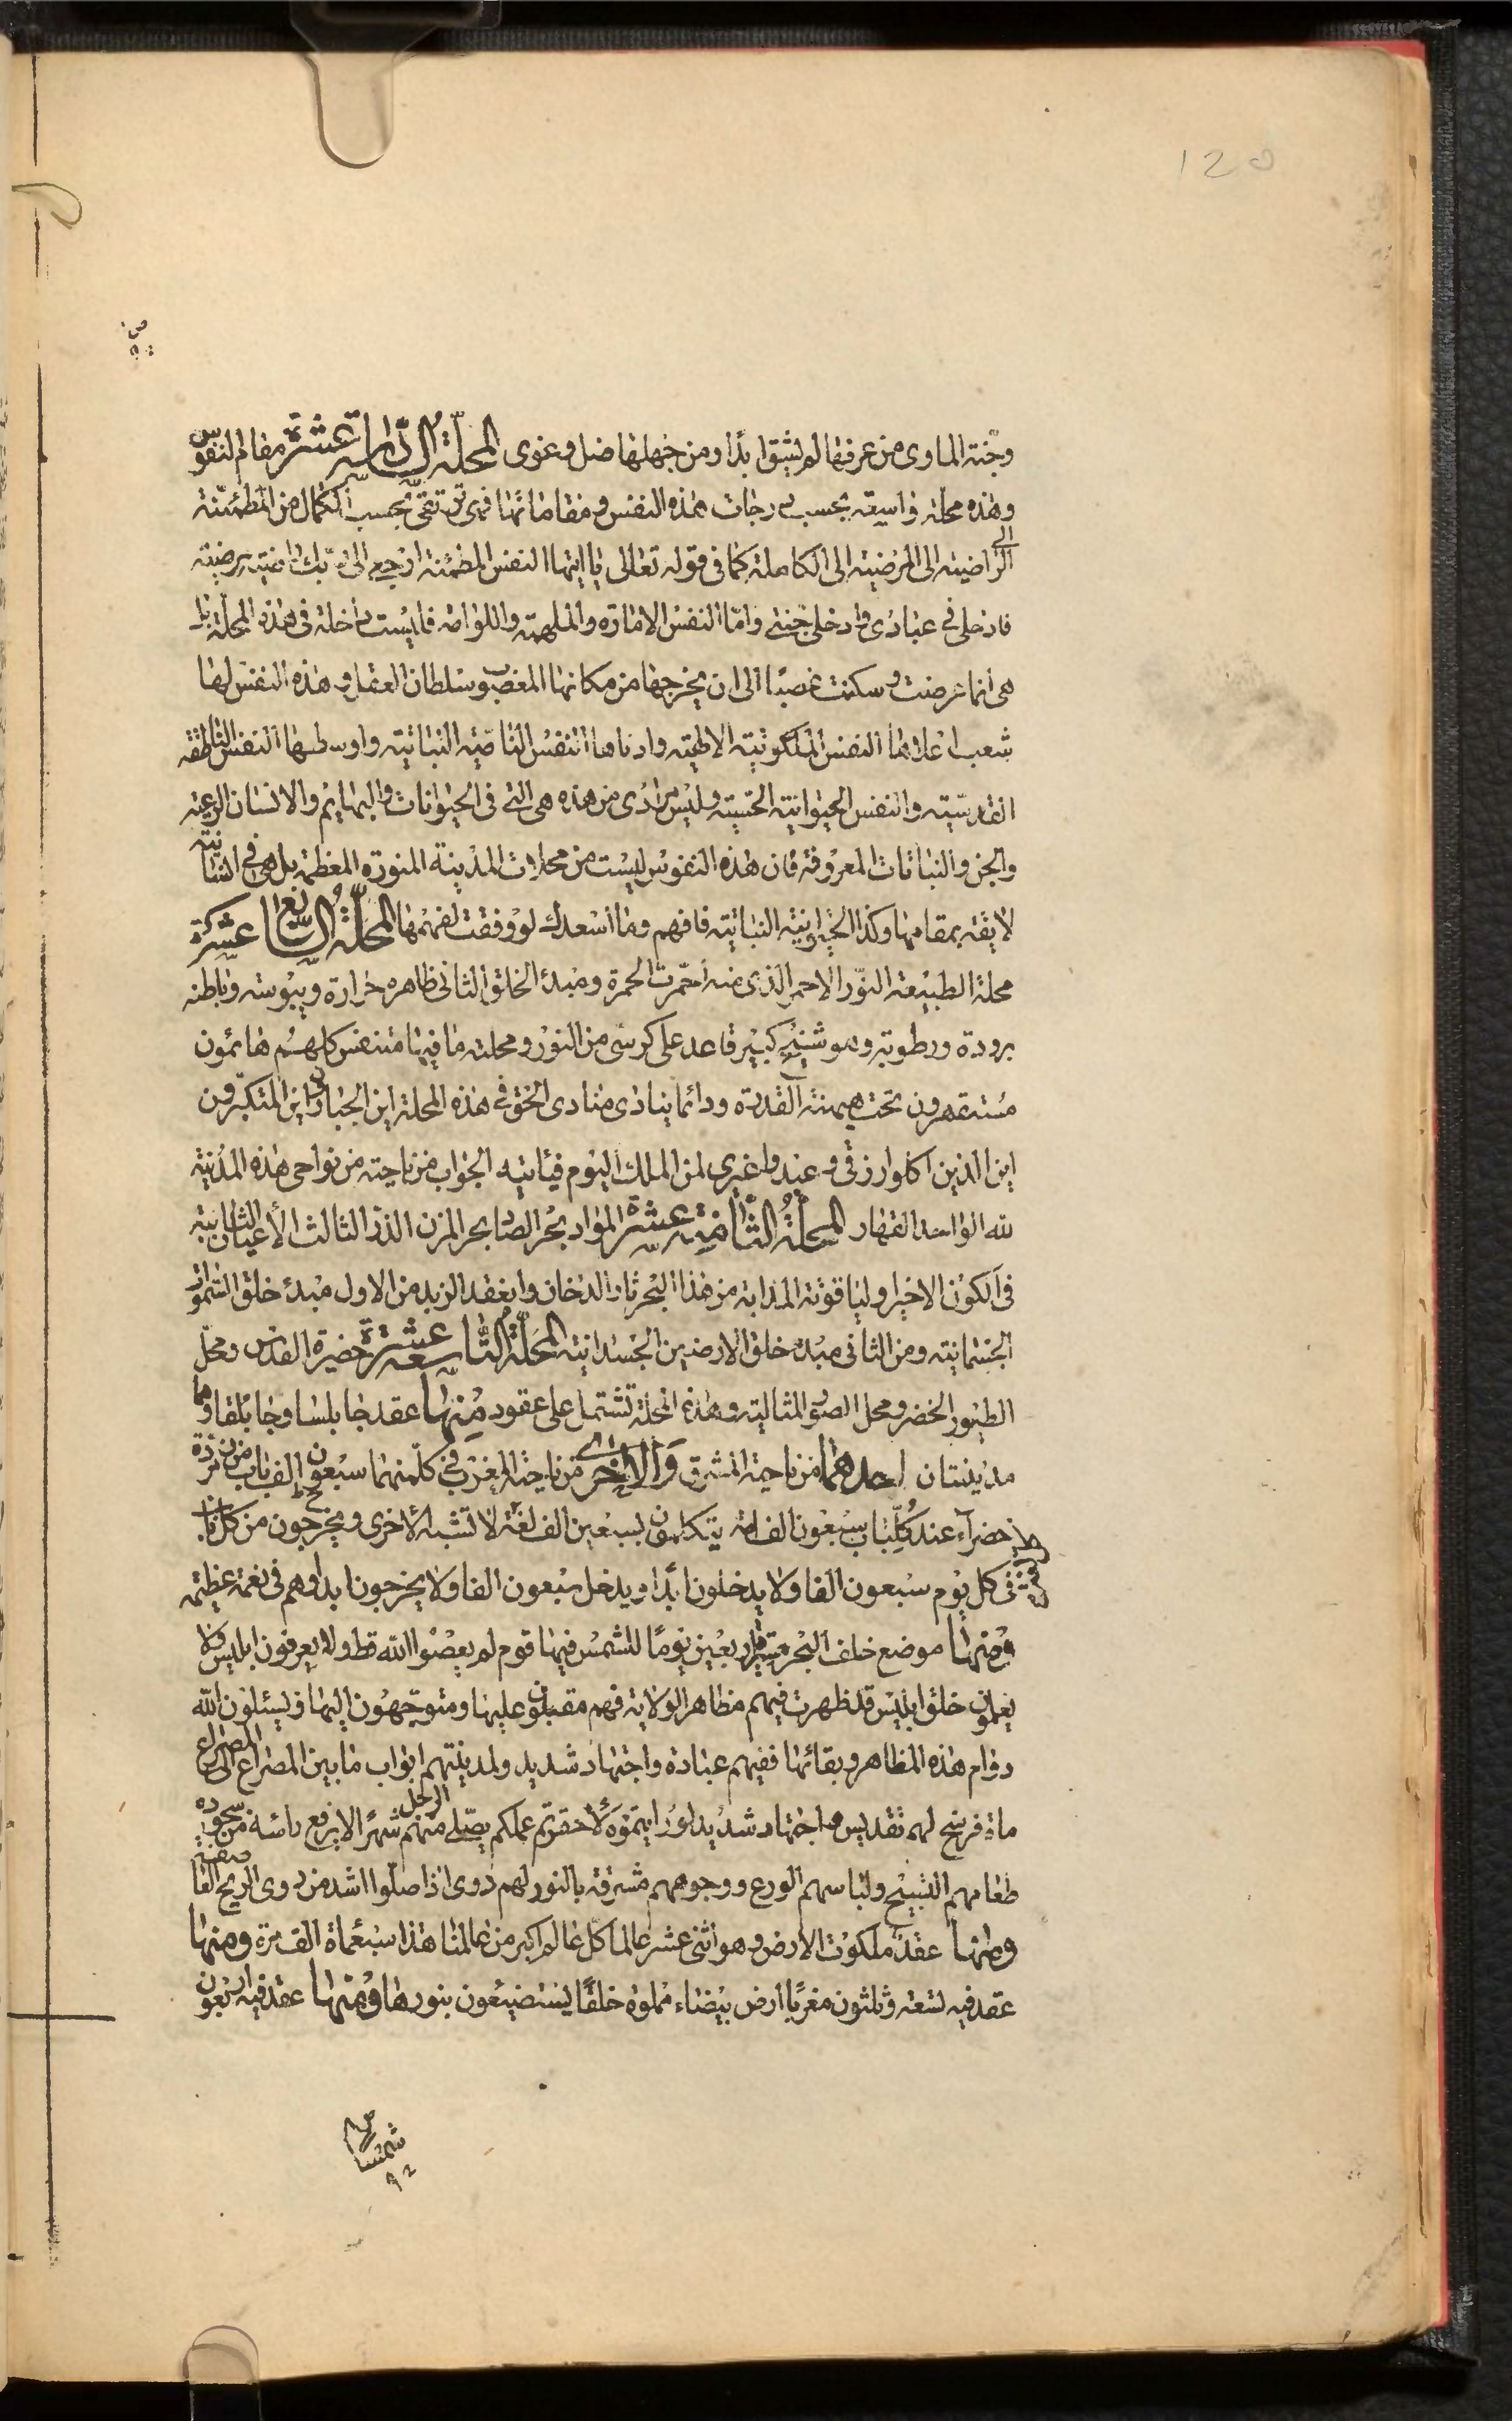 120
وجنة الماوى من عرفها لم يشق ابدا ومن جهلها ضل وغوى المحلة السادسة عشرة مقام النفوس
وهذه محلة واسعة بحسب درجات هذه النفس ومقاماتها فهى ترتقى بحسب الكمال من المطمئنة
الى الراضية الى المرضية الى الكاملة كما فى قوله تعالى يا ايتها النفس المطمئنة ارجعى الى ربك راضية مرضية
فادخلى فى عبادى وادخلى جنتى واما النفس الامارة والملهمة واللوامة فليست داخلة فى هذه المحلة بل
هى انما عرضت وسكنت غصبا الى ان يخرجها من مكانها المغصوب سلطان العقل وهذه النفس لها
شعب اعلاها النفس الملكوتية الالهية وادناها النفس النامية النباتية واوسطها النفس الناطقة
القدسية والنفس الحيوانية الحسية وليس مرادى من هذه هى التى فى الحيوانات والبهايم والانسان الرعية
والجن والنباتات المعروفة فان هذه النفوس ليست من محلات المدينة المنورة المعظمة بل هى فى انسانية
لايقة بمقامها وكذا الحيوانية النباتية فافهم وما اسعدك لو وفقت لفهمها المحلة السابعة عشرة
محلة الطبيعة النور الاحمر الذى منه احمرت الحمرة ومبدء الخلق الثانى ظاهره حرارة ويبوسة وباطنه
برودة ورطوبة وهو شيخ كبير قاعد على كرسى من النور ومحلته ما فيها متنفس كلهم هائمون
مستقهرون تحت هيمنة القدرة ودائما ينادى منادى الحق فى هذه المحلة اين الجبارون اين المتكبرون
اين الذين اكلوا رزقى وعبدوا غيرى لمن الملك اليوم فياتيه الجواب من ناحية من نواحى هذه المدينة
لله الواحد القهار المحلة الثامنة عشرة المواد بحر الصاد بحر المزن الذر الثالث الأعيان الثابتة
فى الكون الاخير والياقوتة المذابة من هذا البحر ثار الدخان وانعقد الزبد من الاول مبدء خلق السموات
الجسمانية ومن الثانى مبدء خلق الارضين الجسدانية المحلة التاسعة عشرة حضيرة القدس ومحل
الطيور الخضر ومحل الصور المثالية وهذه المحلة تشتمل على عقود منها عقد جابلسا وجابلقا وهما
مدينتان احدهما من ناحية المشرق والاخرى من ناحية المغرب فى كل منهما سبعون الف باب من زمردة
خضرآء عند كل باب سبعون الف امة يتكلمون بسبعين الف لغة لا تشبه الأخرى ويخرجون من كل باب
فى كل يوم سبعون الفا ولا يدخلون ابدا ويدخل سبعون الفا ولا يخرجون ابدا وهم فى نعمة عظيمة
ومنها موضع خلف البحر مسير اربعين يوما للشمس فيها قوم لم يعصوا الله قط ولا يعرفون ابليس ولا
يعلمون خلق ابليس قد ظهرت فيهم مظاهر الولاية فهم مقبلون عليها ومتوجهون اليها ويسئلون الله
دوام هذه المظاهر وبقائها ففيهم عبادة واجتهاد شديد ولمدينتهم ابواب ما بين المصراع الى المصراع
ماة فرسخ لهم تقديس واجتهاد شديد لو رايتموه لأحقرتم عملكم يصلى الرجل منهم شهرا لا يرفع راسه من سجوده
طعامهم التسبيح ولباسهم الورع ووجوههم مشرقة بالنور لهم دوى اذا صلوا اشد من دوى الريح العاصف
ومنها عقد ملكوت الارض وهو اثنى عشر عالما كل عالم اكبر من عالمنا هذا سبعماة الف مرة ومنها
عقد فيه تسعة وثلثون مغربا ارض بيضاء مملوة خلقا يستضيئون بنورها ومنها عقد فيه اربعون